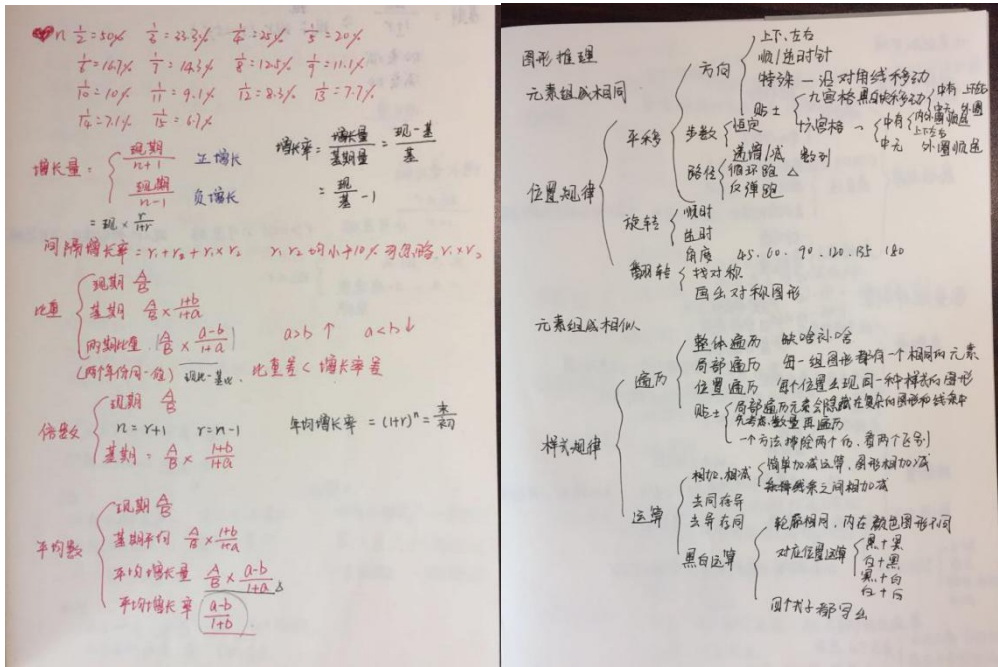 n 1/2=50% 1/3=33.3% 1/4=25% 1/5=20%
1/6=16.7% 1/7=14.3% 1/8=12.5% 1/9=11.1%
1/10=10% 1/11=9.1% 1/12=8.3% 1/13=7.7%
1/14=7.1% 1/15=6.7%
增长量: 现期/n+1 正增长
现期/n-1 负增长
=现×r/1+r
增长率=增长量/基期量=现-基/基
=现/基-1
间隔增长率=r₁+r₂+r₁×r₂ r₁ r₂均小于10% 可忽略r₁×r₂
比重
现期 A/B
基期 A/B×1+b/1+a
两期比重 |A/B×a-b/1+a| a>b↑ a<b↓
(两个年份同一组) 现比-基比. 比重差<增长率差
倍数
现期 A/B
n=r+1 r=n-1
基期: A/B×1+b/1+a
年均增长率=(1+r)ⁿ=末/初
平均数
现期 A/B
基期平均 A/B×1+b/1+a
平均增长量 A/B×a-b/1+a △
平均增长率 a-b/1+b
图形推理
元素组成相同
位置规律
平移
方向
上下、左右
顺/逆时针
特殊—沿对角线移动
贴士
九宫格黑块移动
中有 上下左右
中无 外圈
十六宫格→
中有 内外圈顺逆
上下左右
中无 外圈顺逆
步数
恒定
递增/减 数列
路径
循环跑 △
反弹跑
旋转
顺时
逆时
角度 45.60.90.120.135 180
翻转
找对称
画出对称图形
元素组成相似
样式规律
遍历
整体遍历 缺啥补啥
局部遍历 每一组图形都有一个相同的元素
位置遍历 每个位置出现同一种样式的图形
贴士
局部遍历元素会隐藏在复杂的图形和线条中
先考虑数量再遍历
一个方法排除两个后,看两个区别
运算
相加、相减
简单加减运算,图形相加减
线条之间相加减
去同存异
去异存同
黑白运算
轮廓相同,内在颜色图形不同
对应位置运算
黑+黑
白+黑
黑+白
白+白
四个式子都写出